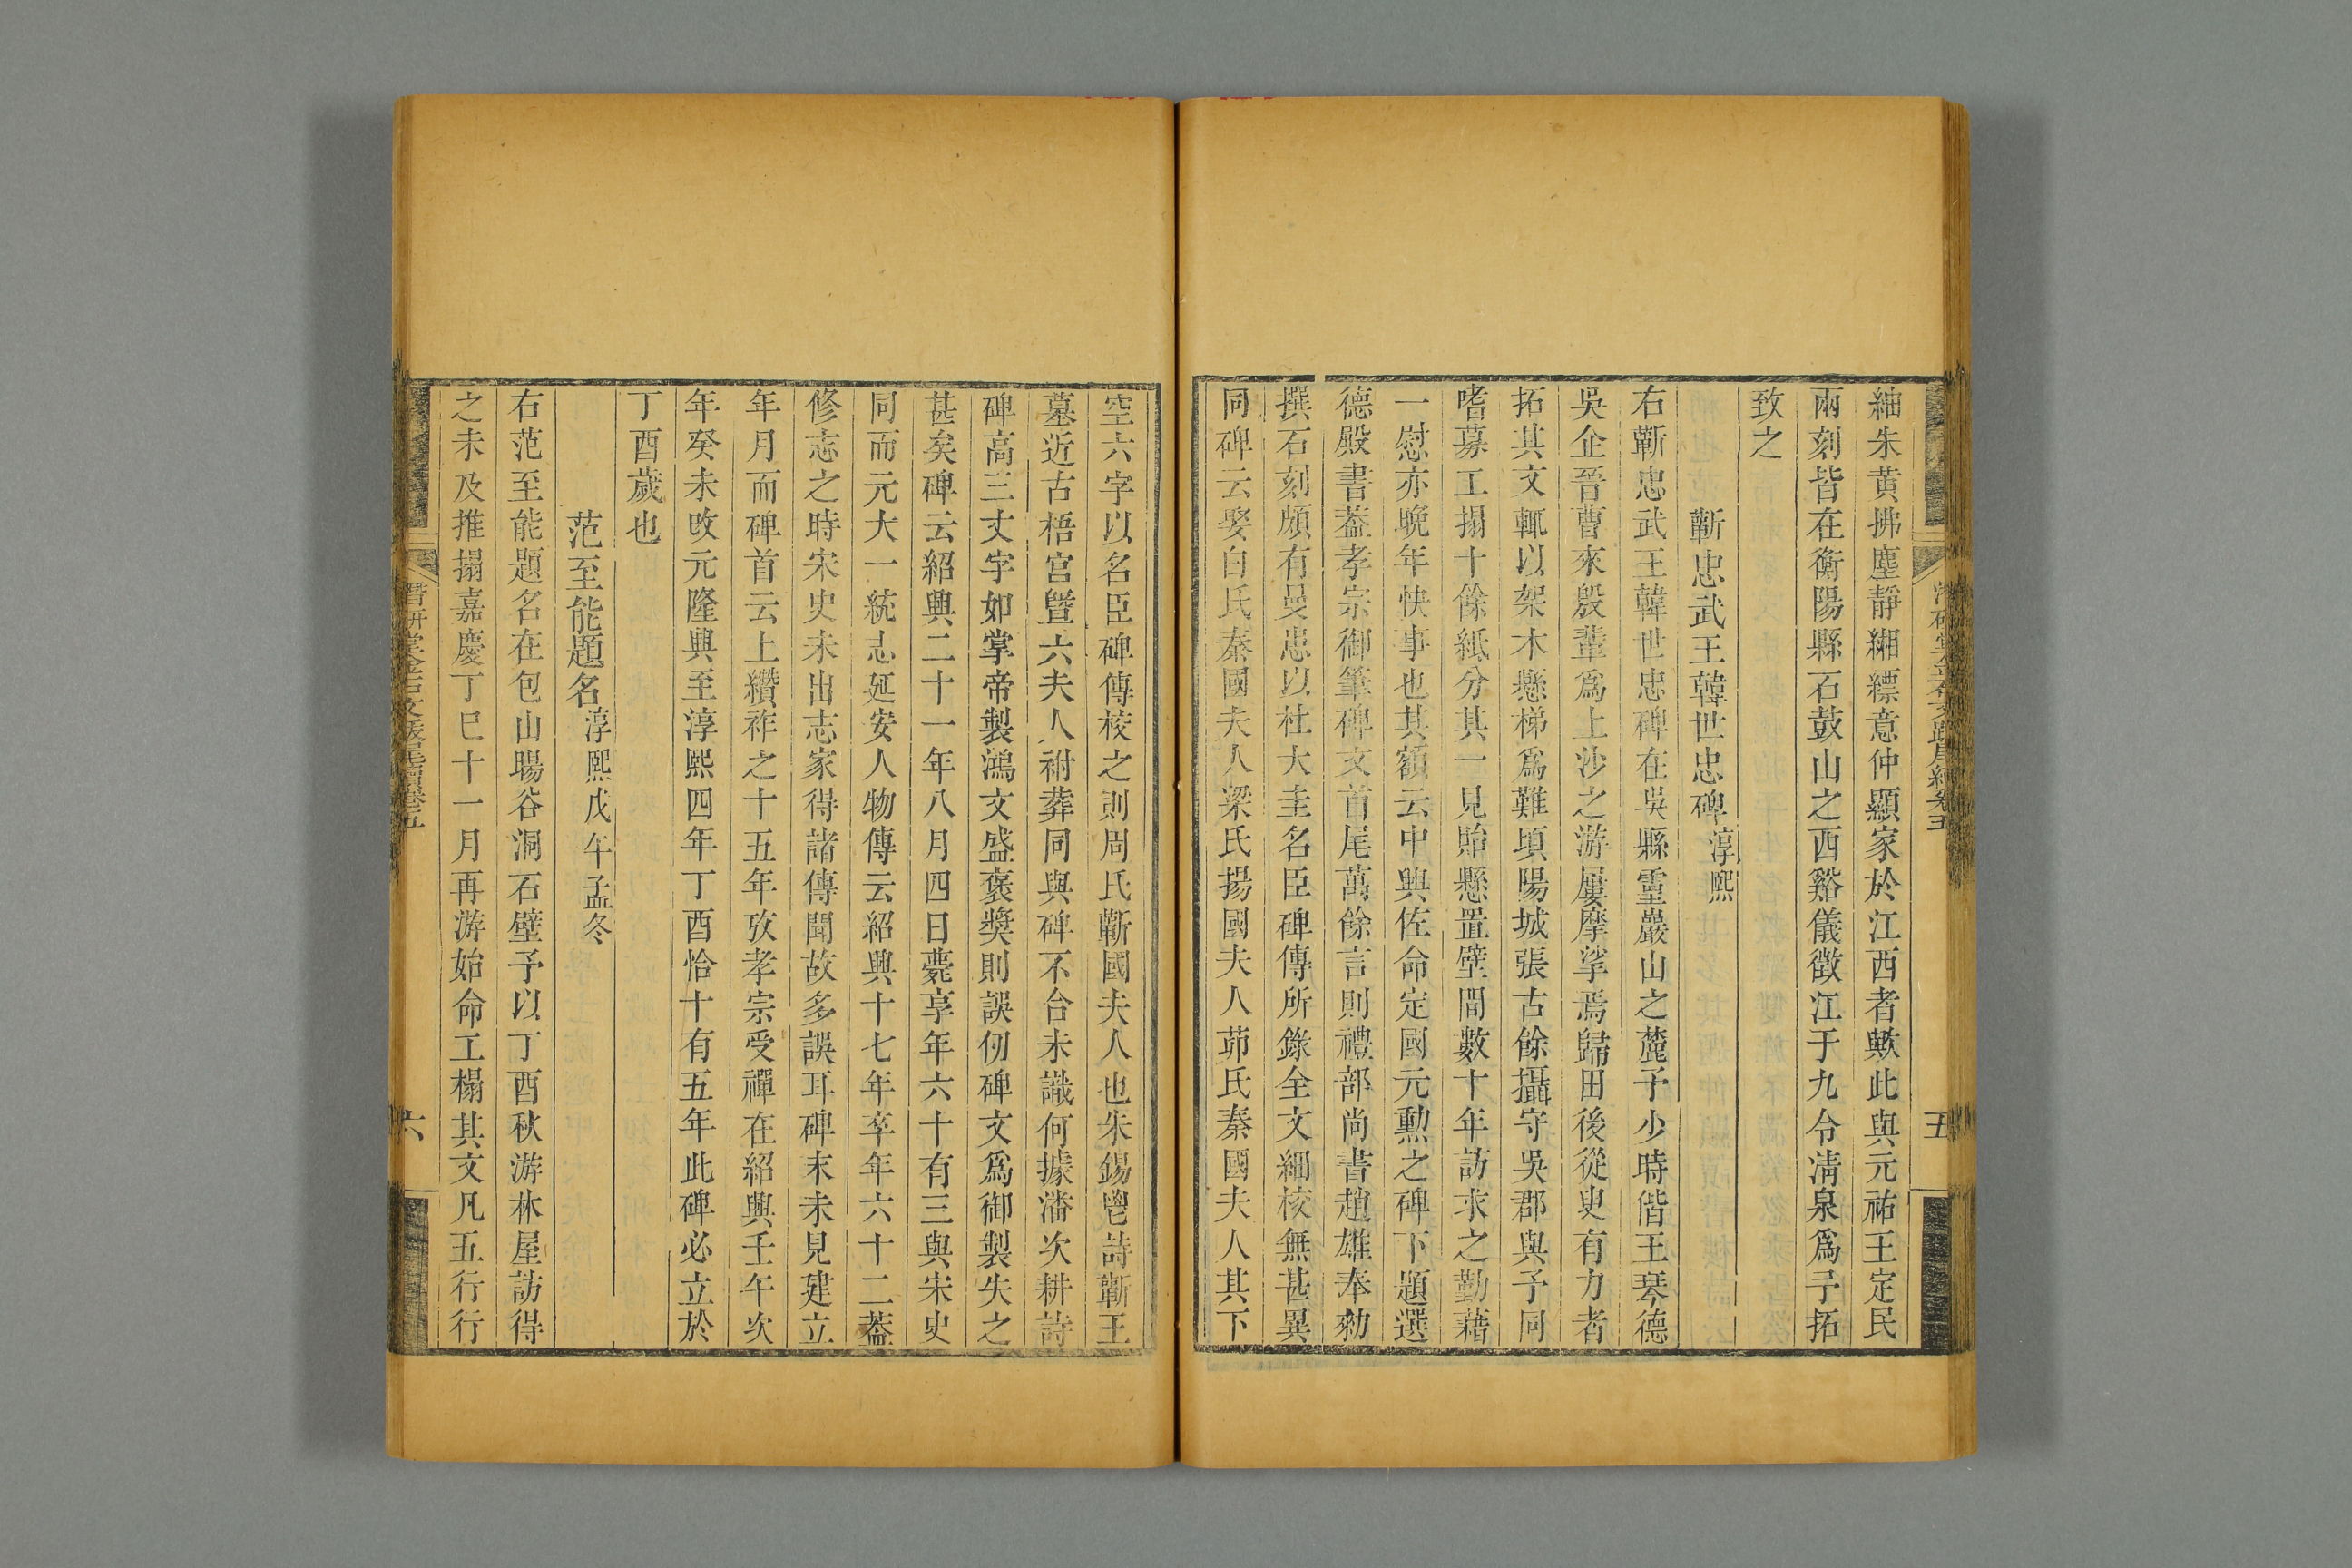 紬朱黄拂塵靜緗縹意仲顯家於江西者歟此與元祐王定民
兩刻皆在衡陽縣石鼓山之西谿儀徵江于九令淸泉爲予拓
致之
蘄忠武王韓世忠碑淳熙
右蘄忠武王韓世忠碑在吳縣靈巖山之麓予少時偕王琴德
吳企晉曹來殷輩爲上沙之游屢摩挲焉歸田後從臾有力者
拓其文輒以架木懸梯爲難頃陽城張古餘攝守吳郡與予同
嗜募工搨十餘紙分其一見貽懸置壁間數十年訪求之勤藉
一慰亦晚年快事也其額云中興佐命定國元勲之碑下題選
德殿書葢孝宗御筆碑文首尾萬餘言則禮部尚書趙雄奉勑
撰石刻頗有曼患以杜大圭名臣碑傳所錄全文細校無甚異
同碑云娶白氏秦國夫人梁氏揚國夫人茆氏秦國夫人其下
空六字以名臣碑傳校之則周氏蘄國夫人也朱錫鬯詩蘄王
墓近古梧宮曁六夫人祔葬同與碑不合未識何據潘次耕詩
碑高三丈字如掌帝製鴻文盛褒奬則誤仞碑文爲御製失之
甚矣碑云紹興二十一年八月四日薨享年六十有三與宋史
同而元大一統志延安人物傳云紹興十七年卒年六十二葢
修志之時宋史未出志家得諸傳聞故多誤耳碑末未見建立
年月而碑首云上纘祚之十五年攷孝宗受禪在紹興壬午次
年癸未改元隆興至淳熙四年丁酉恰十有五年此碑必立於
丁酉歲也
范至能題名淳熙戊午孟冬
右范至能題名在包山暘谷洞石壁予以丁酉秋游林屋訪得
之未及推搨嘉慶丁巳十一月再游始命工榻其文凡五行行
六